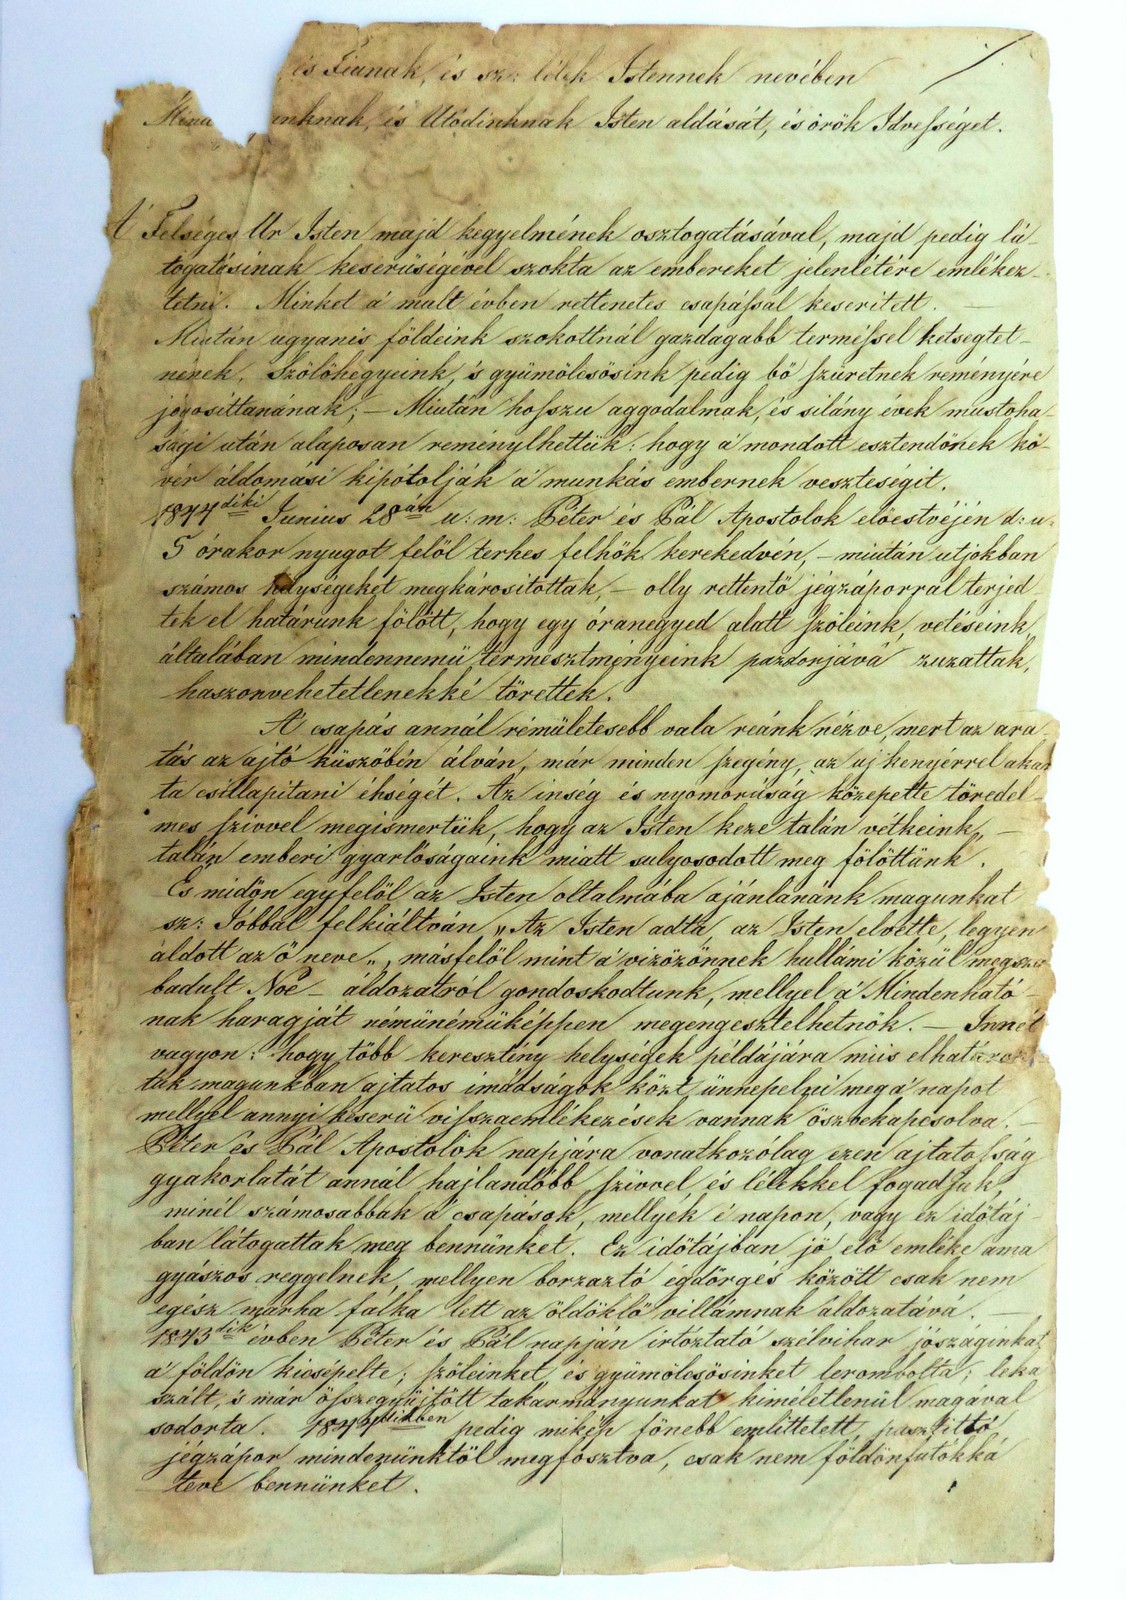 és Fiunak, és sz: lélek Istennek nevében
unknak, és Utódinknak Isten áldását, és örök Idvességet.
A' Felséges Ur Isten majd kegyelmének osztogatásával, majd pedig lá-
togatásinak keserüségével szokta az embereket jelenlétére emlékez-
tetni. Minket á mult évben rettenetes csapással keserített. —
Miután ugyanis földeink szokottnál gazdagabb terméssel ketsegtet-
nének, Szölöhegyeink, 's gyümölcsösink pedig bö szüretnek reményére
jogosittanának; — Miután hosszu aggodalmak, és silány évek mostoha-
sági után alaposan reménylhettük: hogy á mondott esztendőnek kö-
vér áldomási kipótolják á munkás embernek veszteségit.
1844diki Junius 28án u: m: Péter és Pál Apostolok elöestvéjén d: u:
5 órakor nyugot felöl terhes felhök kerekedvén, — miután utjokban
számos helységeket megkárosítottak, — olly rettentö jégzáporral terjed-
tek el határunk fölött, hogy egy óranegyed alatt szöleink, vetéseink,
általában mindennemü termesztményeink pozdorjává zuzattak,
haszonvehetetlenekké törettek.
A' csapás annál rémületesebb vala reánk nézve, mert az ara-
tás az ajtó küszöbén álván, már minden szegény, az uj kenyérrel akar-
ta csillapitani éhségét. Az inség és nyomorúság közepette töredel-
mes szivvel megismertük, hogy az Isten keze talán vétkeink, —
talán emberi gyarlóságaink miatt sulyosodott meg fölöttünk.
És midőn egyfelöl az Isten oltalmába ajánlanánk magunkat
sz: Jóbbal felkiáltván „Az Isten adta, az Isten elvette, legyen
áldott az ö neve„, másfelöl mint á vizözönnek hullámi közül megsza-
badult Noé — áldozatról gondoskodtunk, mellyel á Mindenható-
nak haragját némünémüképpen megengesztelhetnök. — Innét
vagyon: hogy több keresztény helységek példájára miis elhatároz-
tuk magunkban ajtatos imádságok közt ünnepelni meg á napot
mellyel annyi keserü visszaemlékezések vannak öszvekapcsolva. —
Péter és Pál Apostolok napjára vonatkozólag ezen ajtatosság
gyakorlatát annál hajlandóbb szivvel, és lélekkel fogadjuk,
minél számosabbak á csapások, mellyek é napon, vagy ez idötáj-
ban látogattak meg bennünket. Ez idötájban jö elö emléke ama
gyászos reggelnek, mellyen borzaztó égdörgés között csak nem
egész marha falka lett az öldöklö villámnak áldozatává. —
1843dik évben Péter és Pál napján irtóztató szélvihar jószáginkat
á földön kicsépelte; szöleinket, és gyümölcsösinket lerombolta; leka-
szált, 's már összegyüjtött takarmányunkat kiméletlenül magával
sodorta. 1844dikben pedig mikép fönebb emlittetett, pusztitó
jégzápor mindenünktöl megfosztva, csak nem földönfutókká
tevé bennünket.